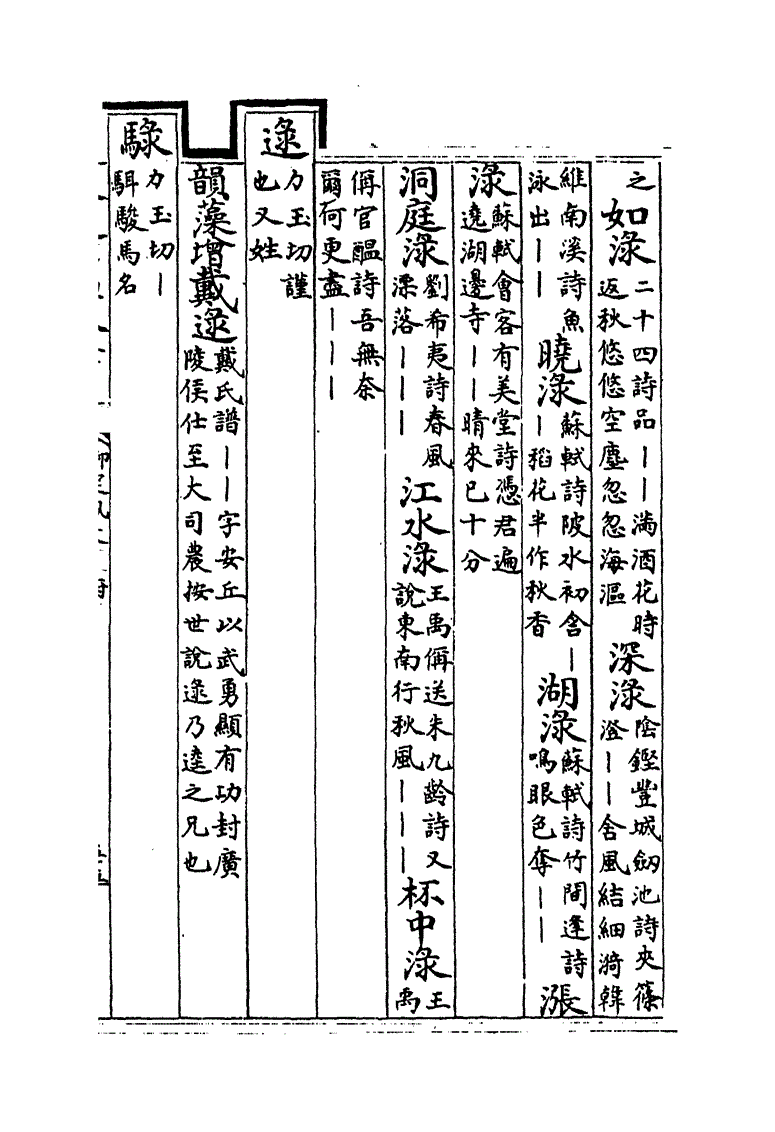 之如淥二十四詩品丨丨滿酒花時返秋悠悠空塵忽忽海漚深淥陰鏗豐城劒池詩夾篠澄丨丨含風結細漪韓
維南溪詩魚泳出丨丨曉淥蘇軾詩陂水初含丨丨稻花半作秋香湖淥蘇軾詩竹間逢詩鳴眼色奪丨丨漲
淥蘇軾會客有美堂詩憑君遍遶湖邊寺丨丨晴來已十分
洞庭淥劉希夷詩春風漂落丨丨丨江水淥王禹偁送朱九齡詩又說東南行秋風丨丨丨杯中淥王禹
偁官醖詩吾無奈爾何更盡丨丨丨
逯力玉切謹也又姓
韻藻增戴逯戴氏譜丨丨字安丘以武勇顯有功封廣陵侯仕至大司農按世說逯乃逵之兄也
騄力玉切丨駬駿馬名